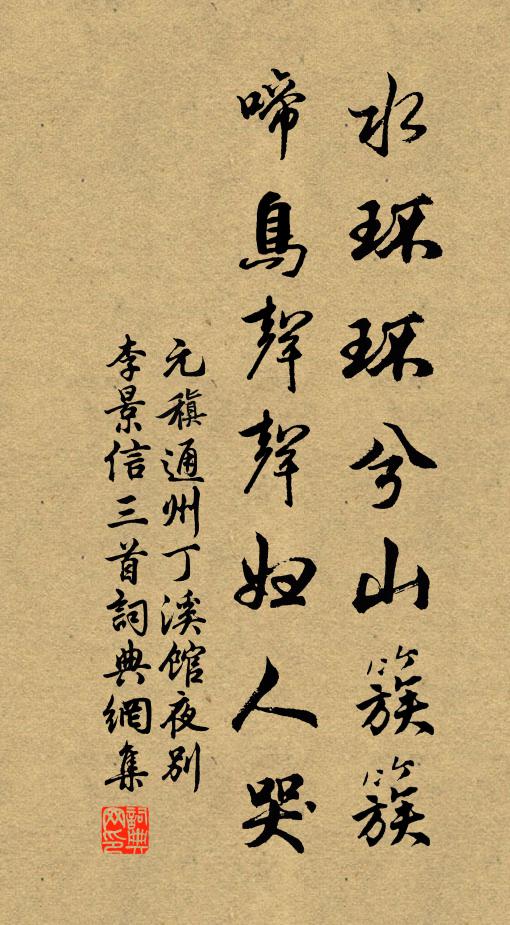 水环环兮山簇簇
啼鳥聲聲妇人哭
元稹通州丁溪館夜別
李景信三首詞典網集
詞典网印